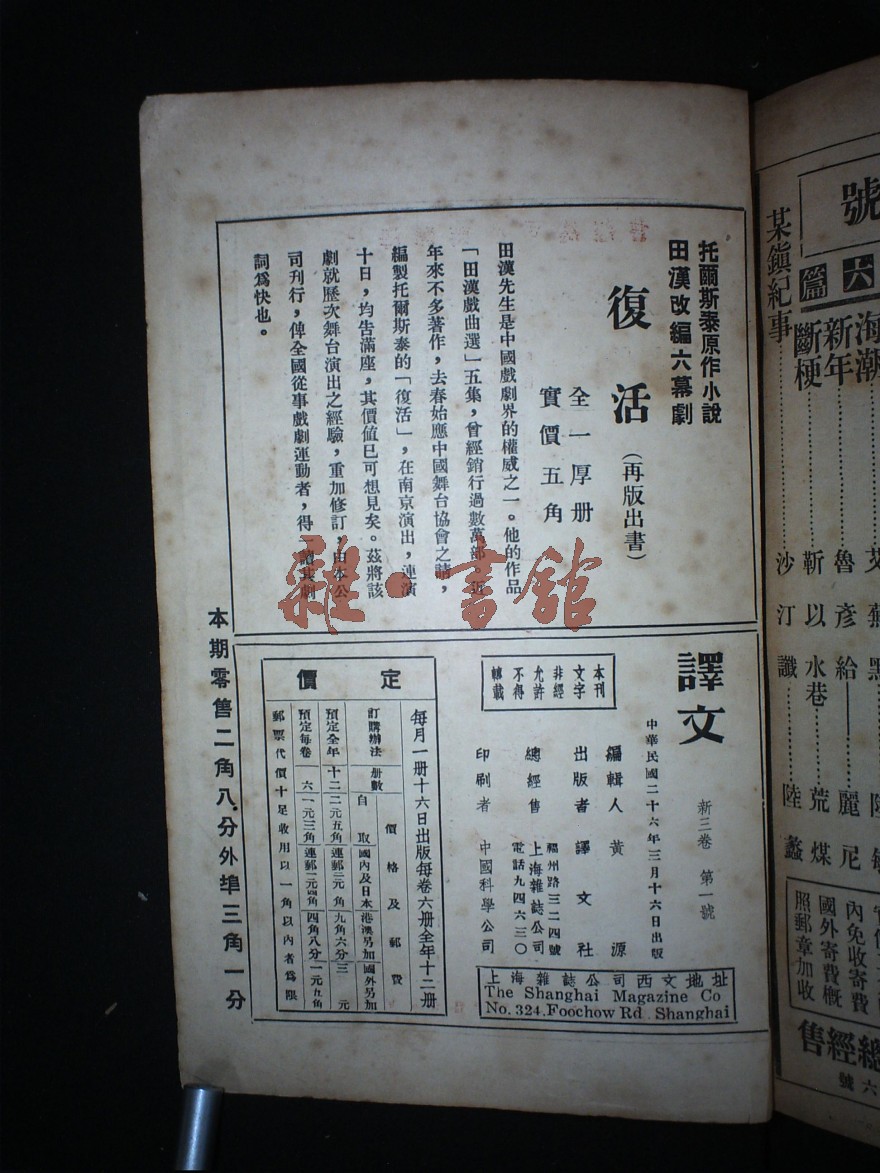 托爾斯泰原作小說
田漢改編六幕劇
復活（再版出書）
全一厚册
實價五角
田漢先生是中國戲劇界的權威之一。他的作品
「田漢戲曲選」五集，曾經銷行過數萬部。近
年來不多著作，去春始應中國舞台協會之請，
編製托爾斯泰的「復活」，在南京演出，連演
十日，均告滿座，其價值已可想見矣。茲將該
劇就歷次舞台演出之經驗，重加修訂，由本公
司刊行，俾全國從事戲劇運動者，得一讀其劇
詞爲快也。
譯文
新三卷 第一號
中華民國二十六年三月十六日出版
編輯人 黃源
出版者 譯文社
福州路三二四號
總經售 上海雜誌公司
電話九四六三〇
印刷者 中國科學公司
本刊
文字
非經
允許
不得
轉載
上海雜誌公司西文地址
The Shanghai Magazine Co
No. 324. Foochow Rd. Shanghai
定價
每月一册十六日出版每卷六册全年十二册
訂購辦法 册數 價格及郵費
自取 國內及日本 港澳另加 國外另加
預定全年 十二 二元五角 連郵三元 角 九角六分 三元
預定每卷 六 一元三角 連郵一元四角 四角八分 一元五角
郵票代價十足收用以一角以內者爲限
本期零售二角八分外埠三角一分
雜·書館
號
六篇
海潮
新年 魯彥
斷梗 靳以
某鎮紀事 沙汀
給 麗尼
水巷 荒煤
讖 陸蠡
內免收寄費
國外寄費概
照郵章加收
總經售
六號